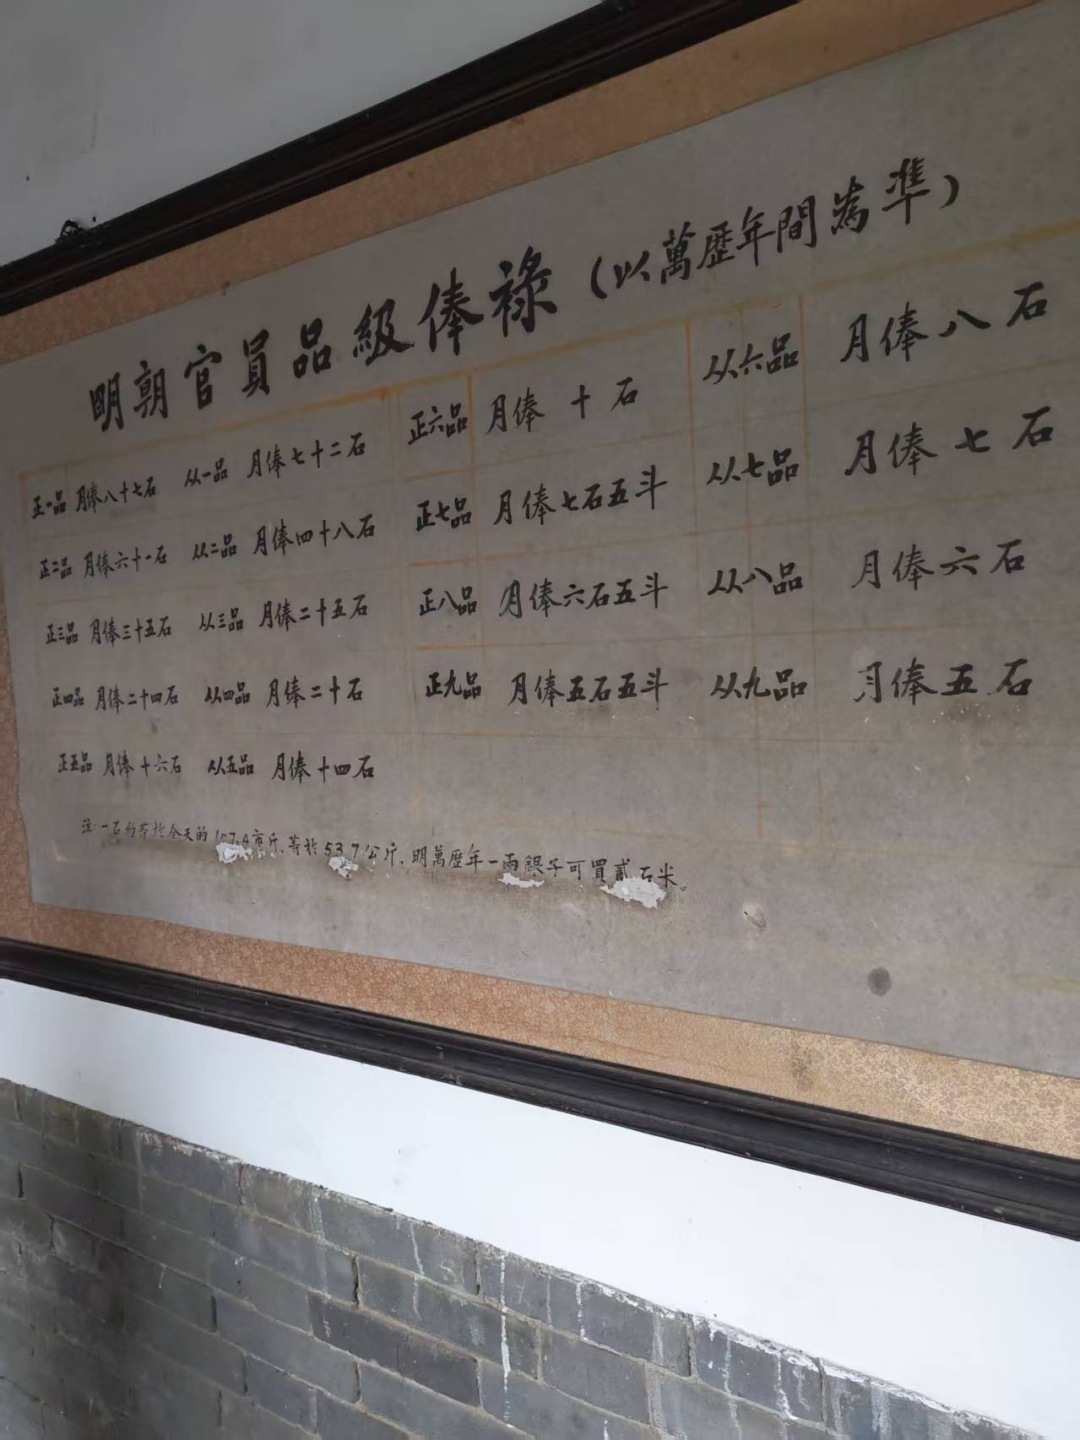 明朝官員品級俸祿（以萬歷年間為準）
正一品 月俸八十七石 从一品 月俸七十二石
正二品 月俸六十一石 从二品 月俸四十八石
正三品 月俸三十五石 从三品 月俸二十五石
正四品 月俸二十四石 从四品 月俸二十石
正五品 月俸十六石 从五品 月俸十四石
正六品 月俸十石 从六品 月俸八石
正七品 月俸七石五斗 从七品 月俸七石
正八品 月俸六石五斗 从八品 月俸六石
正九品 月俸五石五斗 从九品 月俸五石
注：一石約等於今天的107.4市斤，等於53.7公斤，明萬歷年一兩銀子可買貳石米。